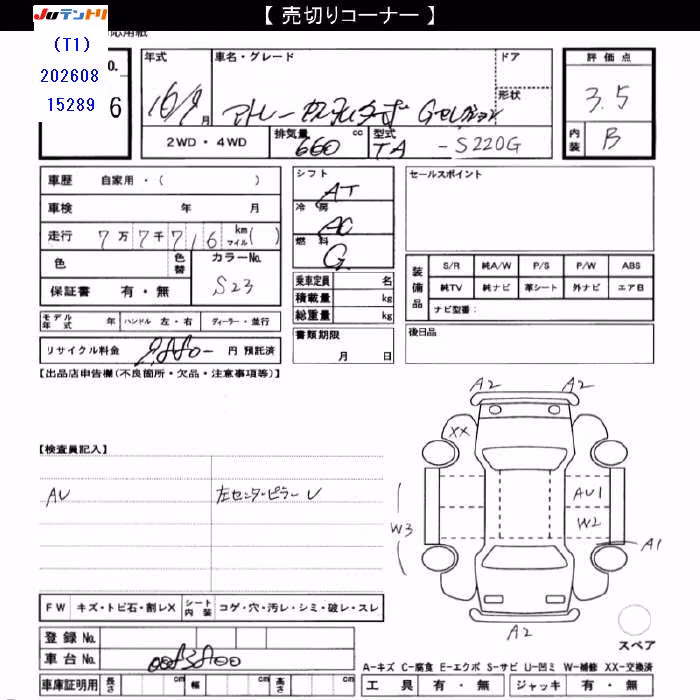 【 売切りコーナー 】
JUテントリ
(T1)
202608
15289
No.
6
年式
車名・グレード
ドア
形状
16/9月
アトレー
Gセレクション
2WD・4WD
排気量
660
cc
型式
TA
-S220G
評価点
3.5
内装
B
車歴
自家用・(
)
車検
年
月
走行
7万7千716
km
マイル
(
)
色
色替
カラーNo.
S23
保証書
有・無
シフト
AT
冷房
AC
燃料
G
乗車定員
名
積載量
kg
総重量
kg
書類期限
月
日
セールスポイント
装備品
S/R
純A/W
P/S
P/W
ABS
純TV
純ナビ
革シート
外ナビ
エアB
ナビ型番:
後日品
モデル年式
年
ハンドル
左・右
ディーラー・並行
リサイクル料金
円 預託済
【出品店申告欄(不良箇所・欠品・注意事項等)】
【検査員記入】
AU
左センターピラーU
A2
A2
XX
AU1
W2
W3
A1
A2
スペア
FW
キズ・トビ石・割レX
シート内装
コゲ・穴・汚レ・シミ・破レ・スレ
登録No.
車台No.
車庫証明用
長さ
cm
幅
cm
高さ
cm
A-キズ C-腐食 E-エクボ S-サビ U-凹ミ W-補修 XX-交換済
工具
有・無
ジャッキ
有・無